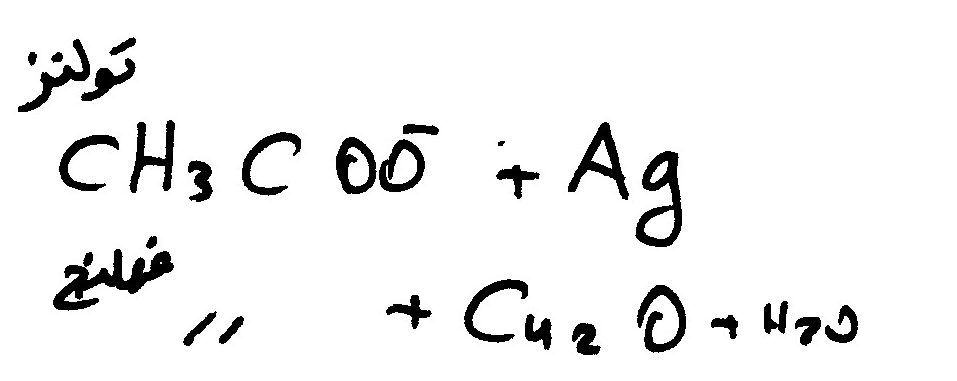 تولنز
CH3COO⁻ + Ag
فهلنج
〃 + Cu2O + H2O